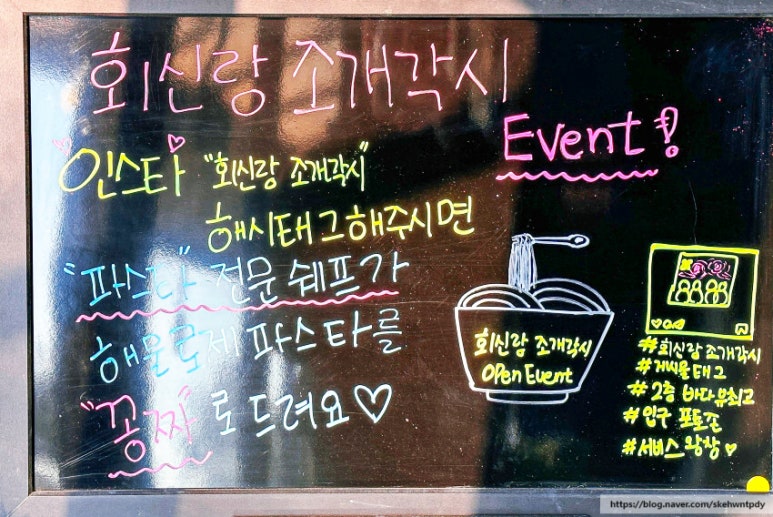 회신랑 조개각시
Event!
인스타 "회신랑 조개각시"
해시태그해주시면
"파스타" 전문 쉐프가
해물국제 파스타를
"꽁짜"로 드려요♡
회신랑 조개각시
Open Event
#회신랑 조개각시
#게시물태그
#2층 바다뷰최고
#입구 포토존
#서비스 왕창♡
https://blog.naver.com/skehwntpdy